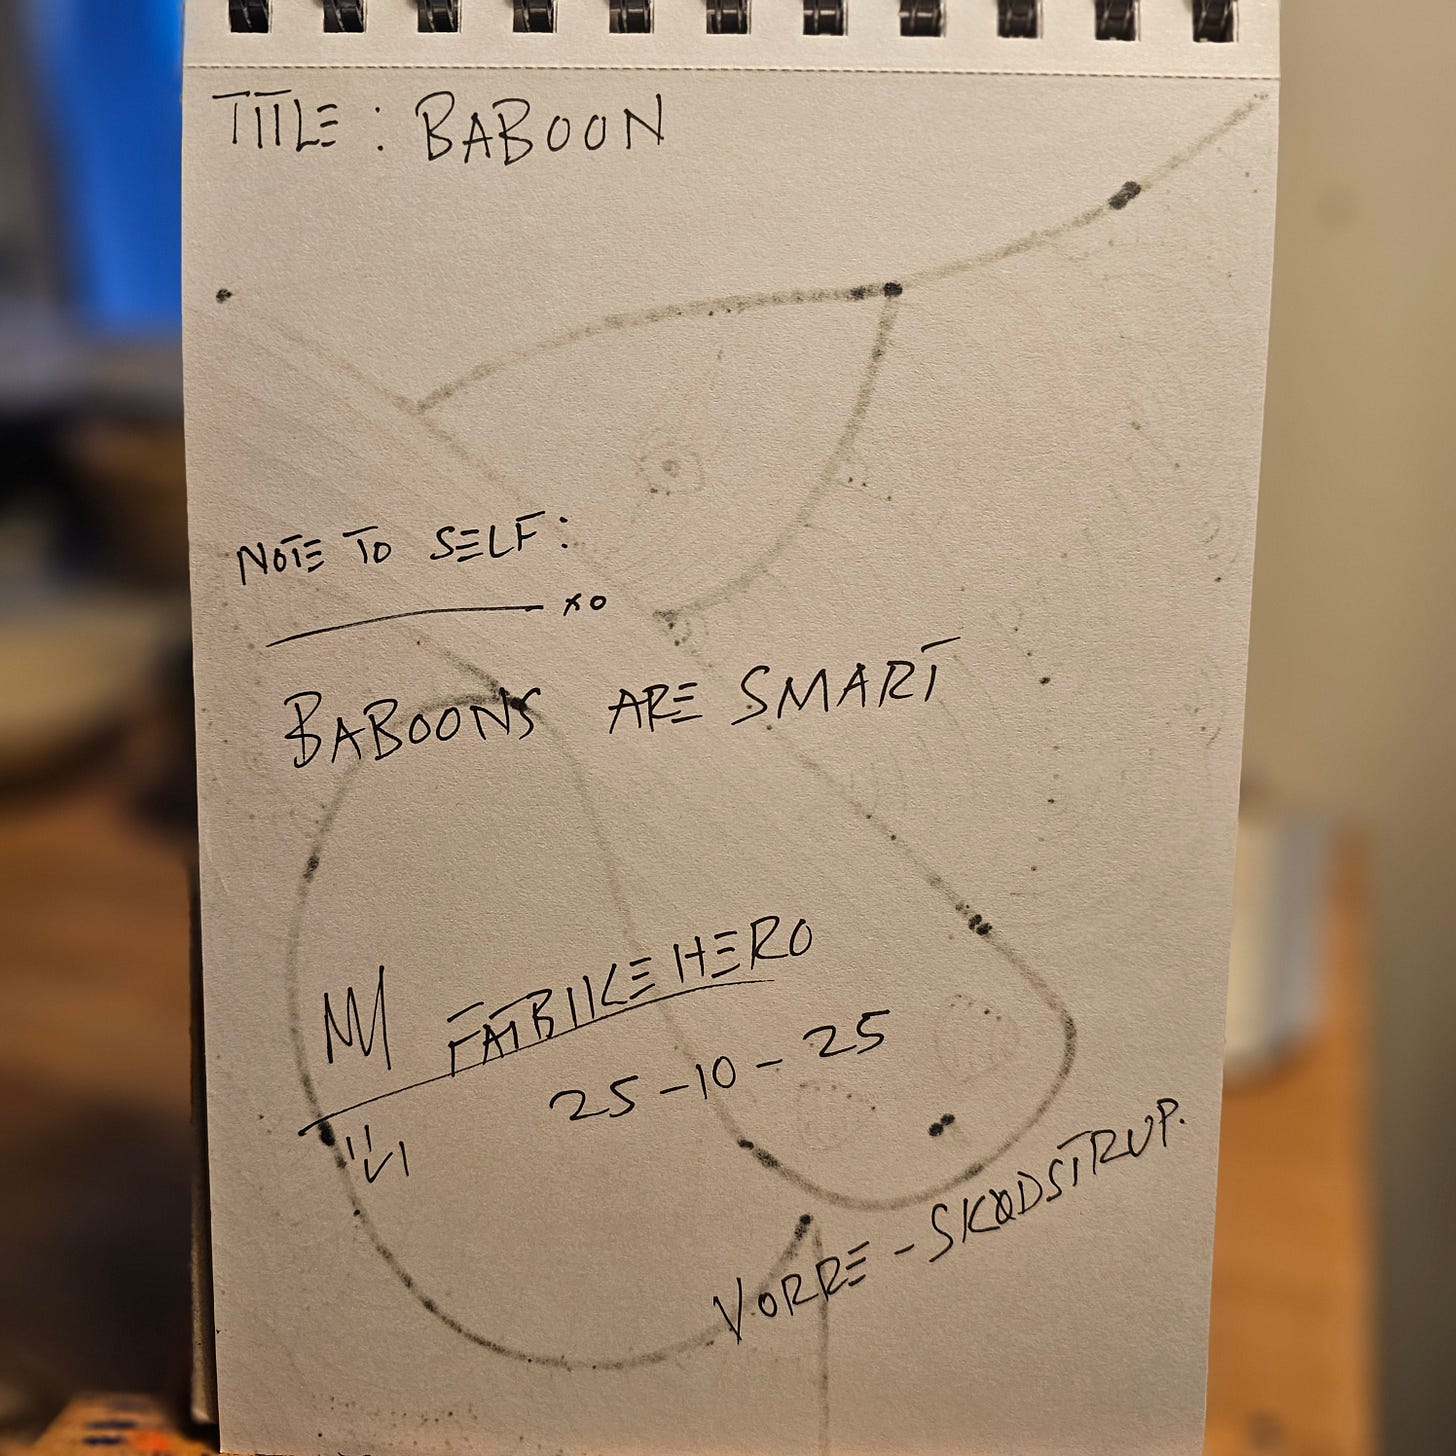 TITLE : BABOON
NOTE TO SELF:
xo
BABOONS ARE SMART
FATBIKEHERO
25-10-25
VORRE-SKØDSTRUP.